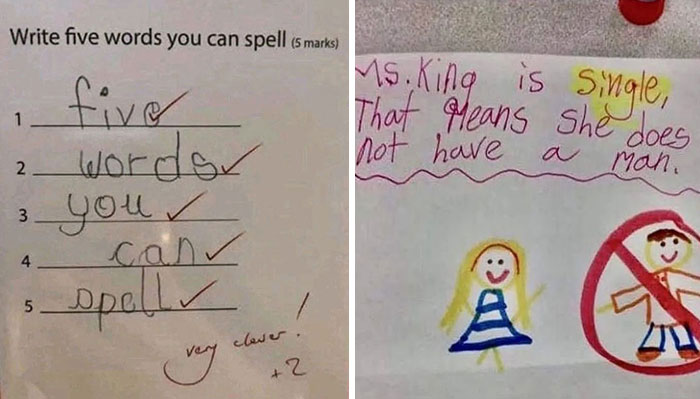 Write five words you can spell (5 marks)
1 five
2 words
3 you
4 can
5 spell
very clever!
+2
Ms. King is Single,
That Means she does
not have a man.